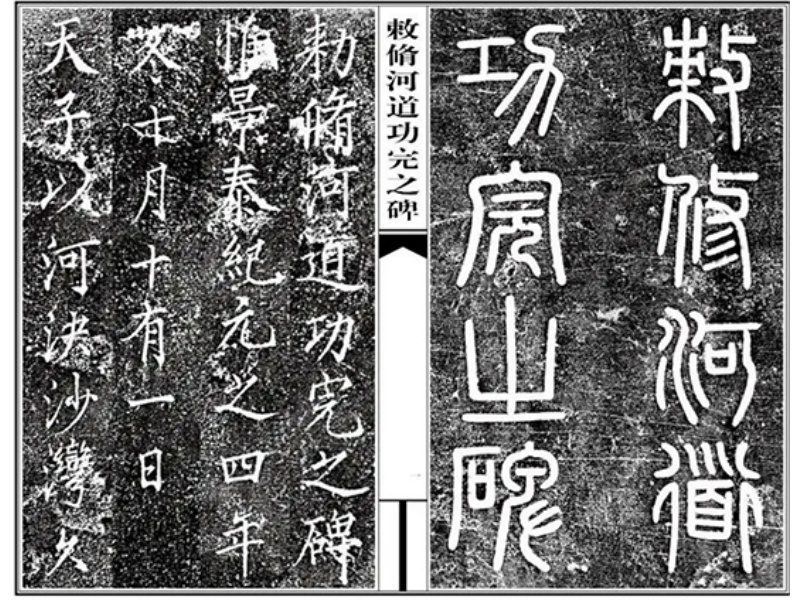 敕修河道
功完之碑
敕脩河道功完之碑
勑脩河道功完之碑
惟景泰紀元之四年
冬十月十有一日
天子以河決沙灣久